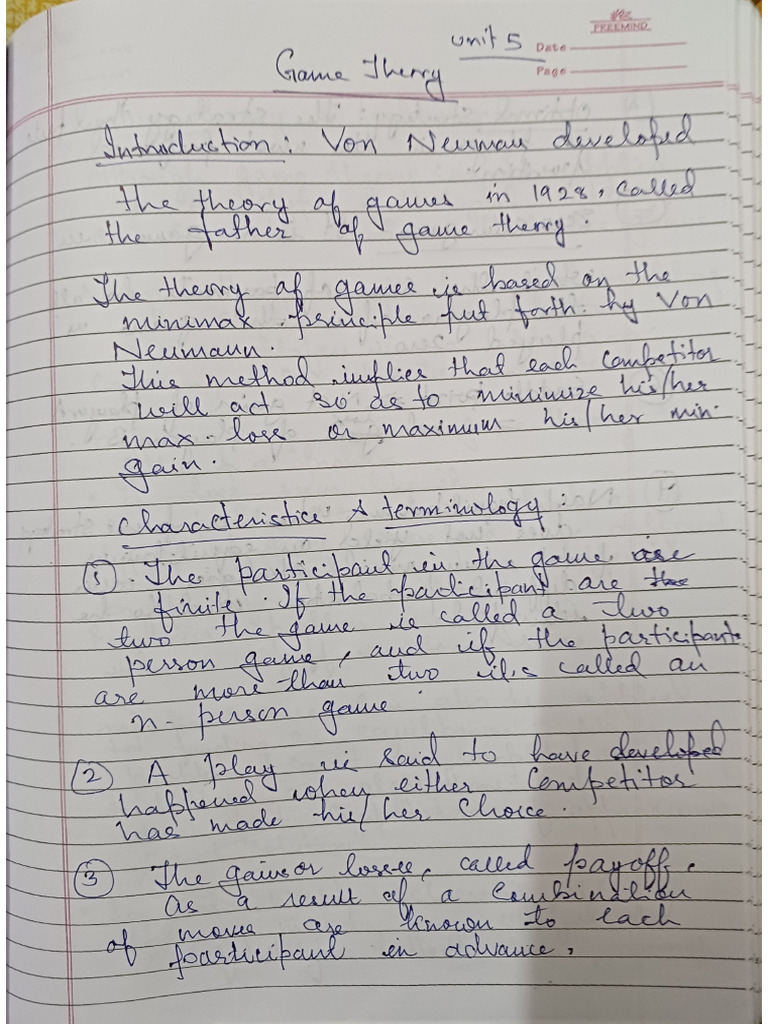 FREEMIND
Unit 5
Date
Page
Game Theory
Introduction: Von Neuman developed
the theory of games in 1928, called
the father of game theory.
The theory of games is based on the
minimax principle put forth by Von
Neumann.
This method implies that each competitor
will act so as to minimize his/her
max. loss or maximum his/her min.
gain.
Characteristics & terminology:
① The participant in the game are
finite. If the participant are the
two the game is called a two
person game, and if the participants
are more than two it's called an
n- person game
② A play is said to have developed
happened when either Competitor
has made his/her choice.
③ The gains or losses, called payoff,
as a result of a combination
of moves are known to each
participant in advance.